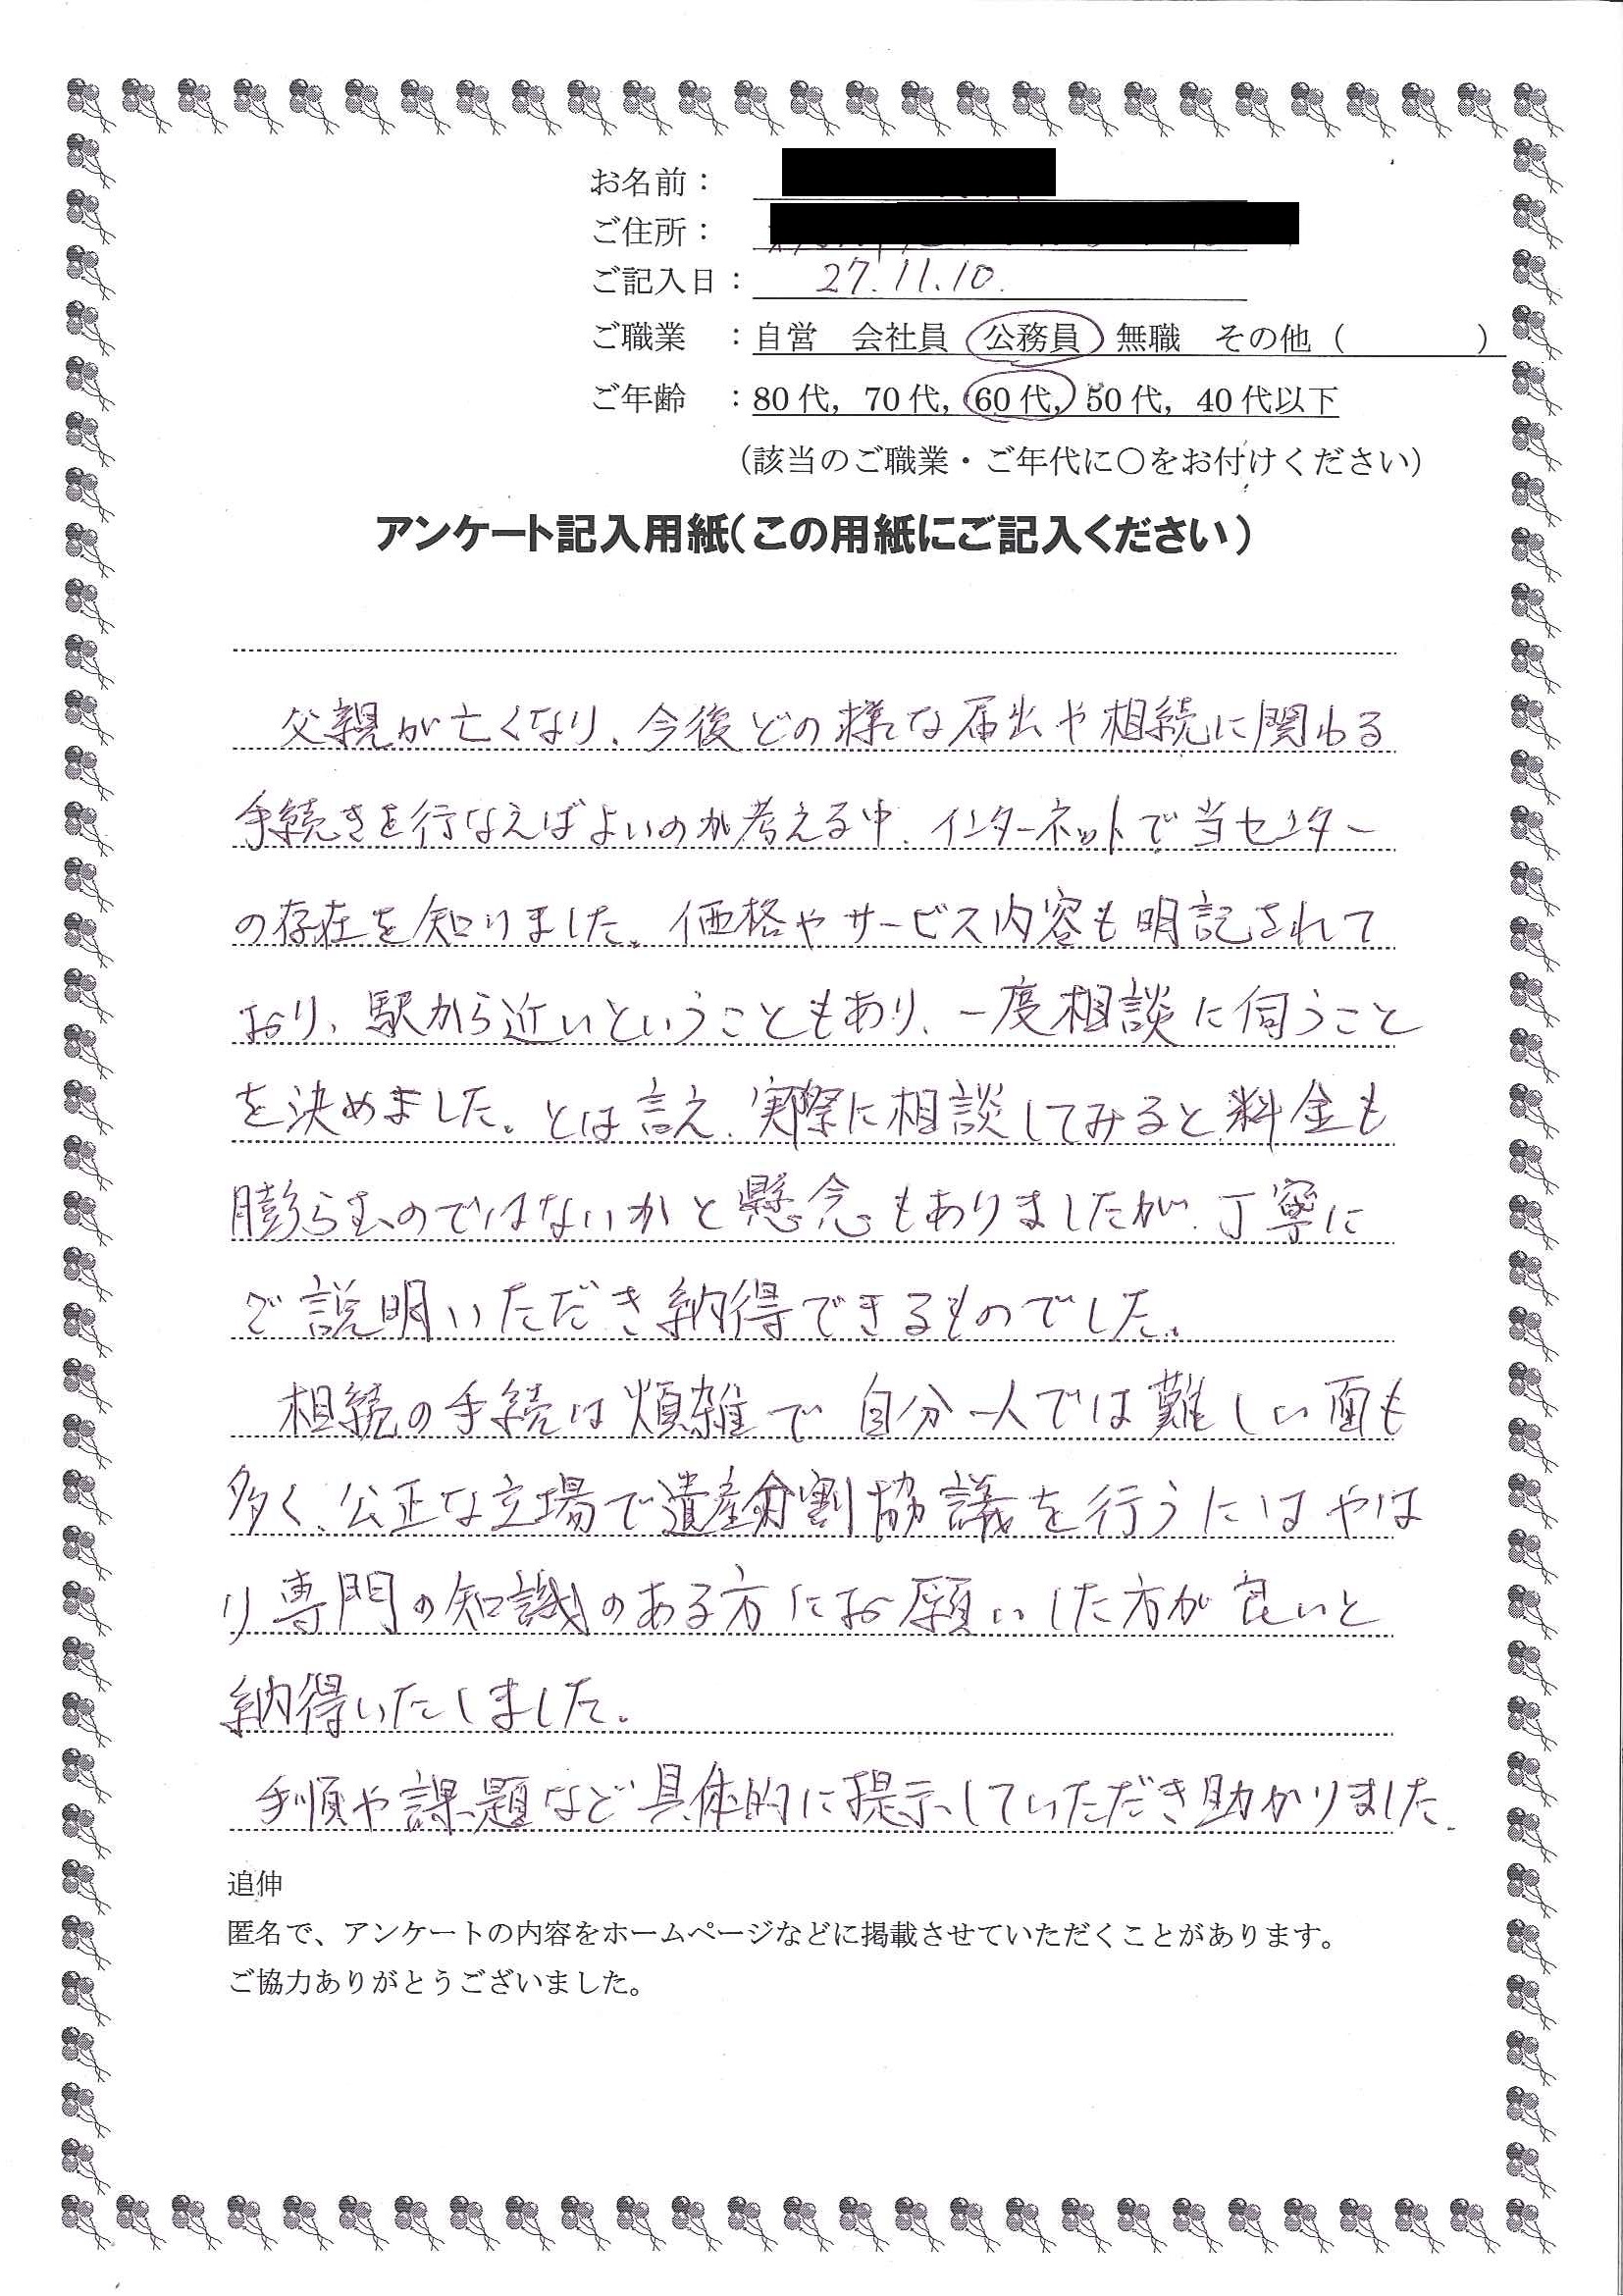 お名前：
ご住所：
ご記入日： 27.11.10.
ご職業 ：自営 会社員 公務員 無職 その他（ ）
ご年齢 ：80代，70代，60代，50代，40代以下
（該当のご職業・ご年代に〇をお付けください）
アンケート記入用紙（この用紙にご記入ください）
父親が亡くなり、今後どの様な届出や相続に関わる
手続きを行なえばよいのか考える中、インターネットで当センター
の存在を知りました。価格やサービス内容も明記されて
おり、駅から近いということもあり、一度相談に伺うこと
を決めました。とは言え、実際に相談してみると料金も
膨らむのではないかと懸念もありましたが、丁寧に
ご説明いただき納得できるものでした。
相続の手続は煩雑で自分一人では難しい面も
多く、公正な立場で遺産分割協議を行うにはやは
り専門の知識のある方にお願いした方が良いと
納得いたしました。
手順や課題など具体的に提示していただき助かりました。
追伸
匿名で、アンケートの内容をホームページなどに掲載させていただくことがあります。
ご協力ありがとうございました。